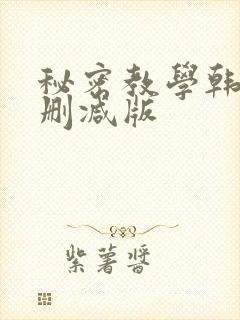 秘密教學韩
删减版
紫薯酱